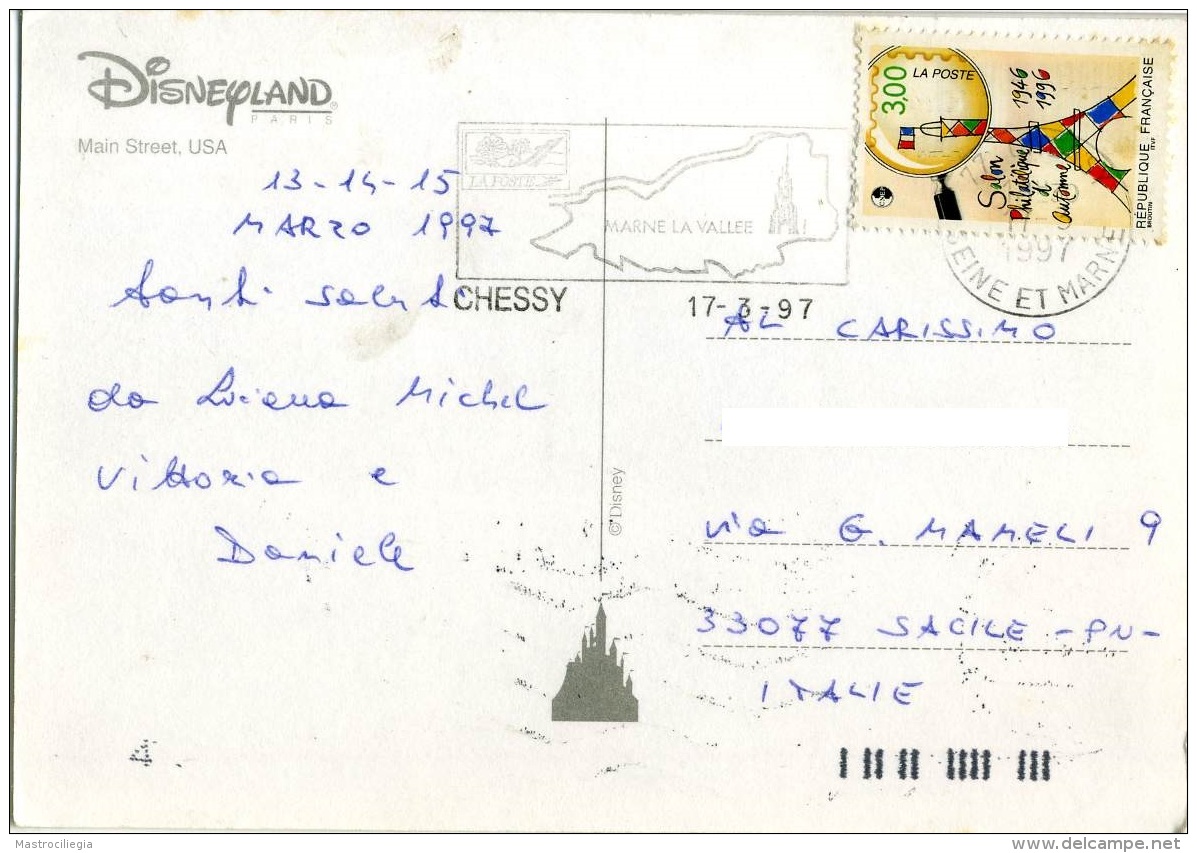 DISNEYLAND
PARIS
Main Street, USA
13-14-15
MARZO 1997
tanti saluti
da Luana Michel
Vittoria e
Daniele
LA POSTE
MARNE LA VALLEE
CHESSY
17-3-97
3,00
LA POSTE
1946
1996
Salon
Philatélique
d'
Automne
RÉPUBLIQUE FRANÇAISE
1997
SEINE ET MARNE
AL CARISSIMO
via G. MAMELI 9
33077 SACILE -PN-
ITALIE
© Disney
Mastrociliegia
delcampe.net